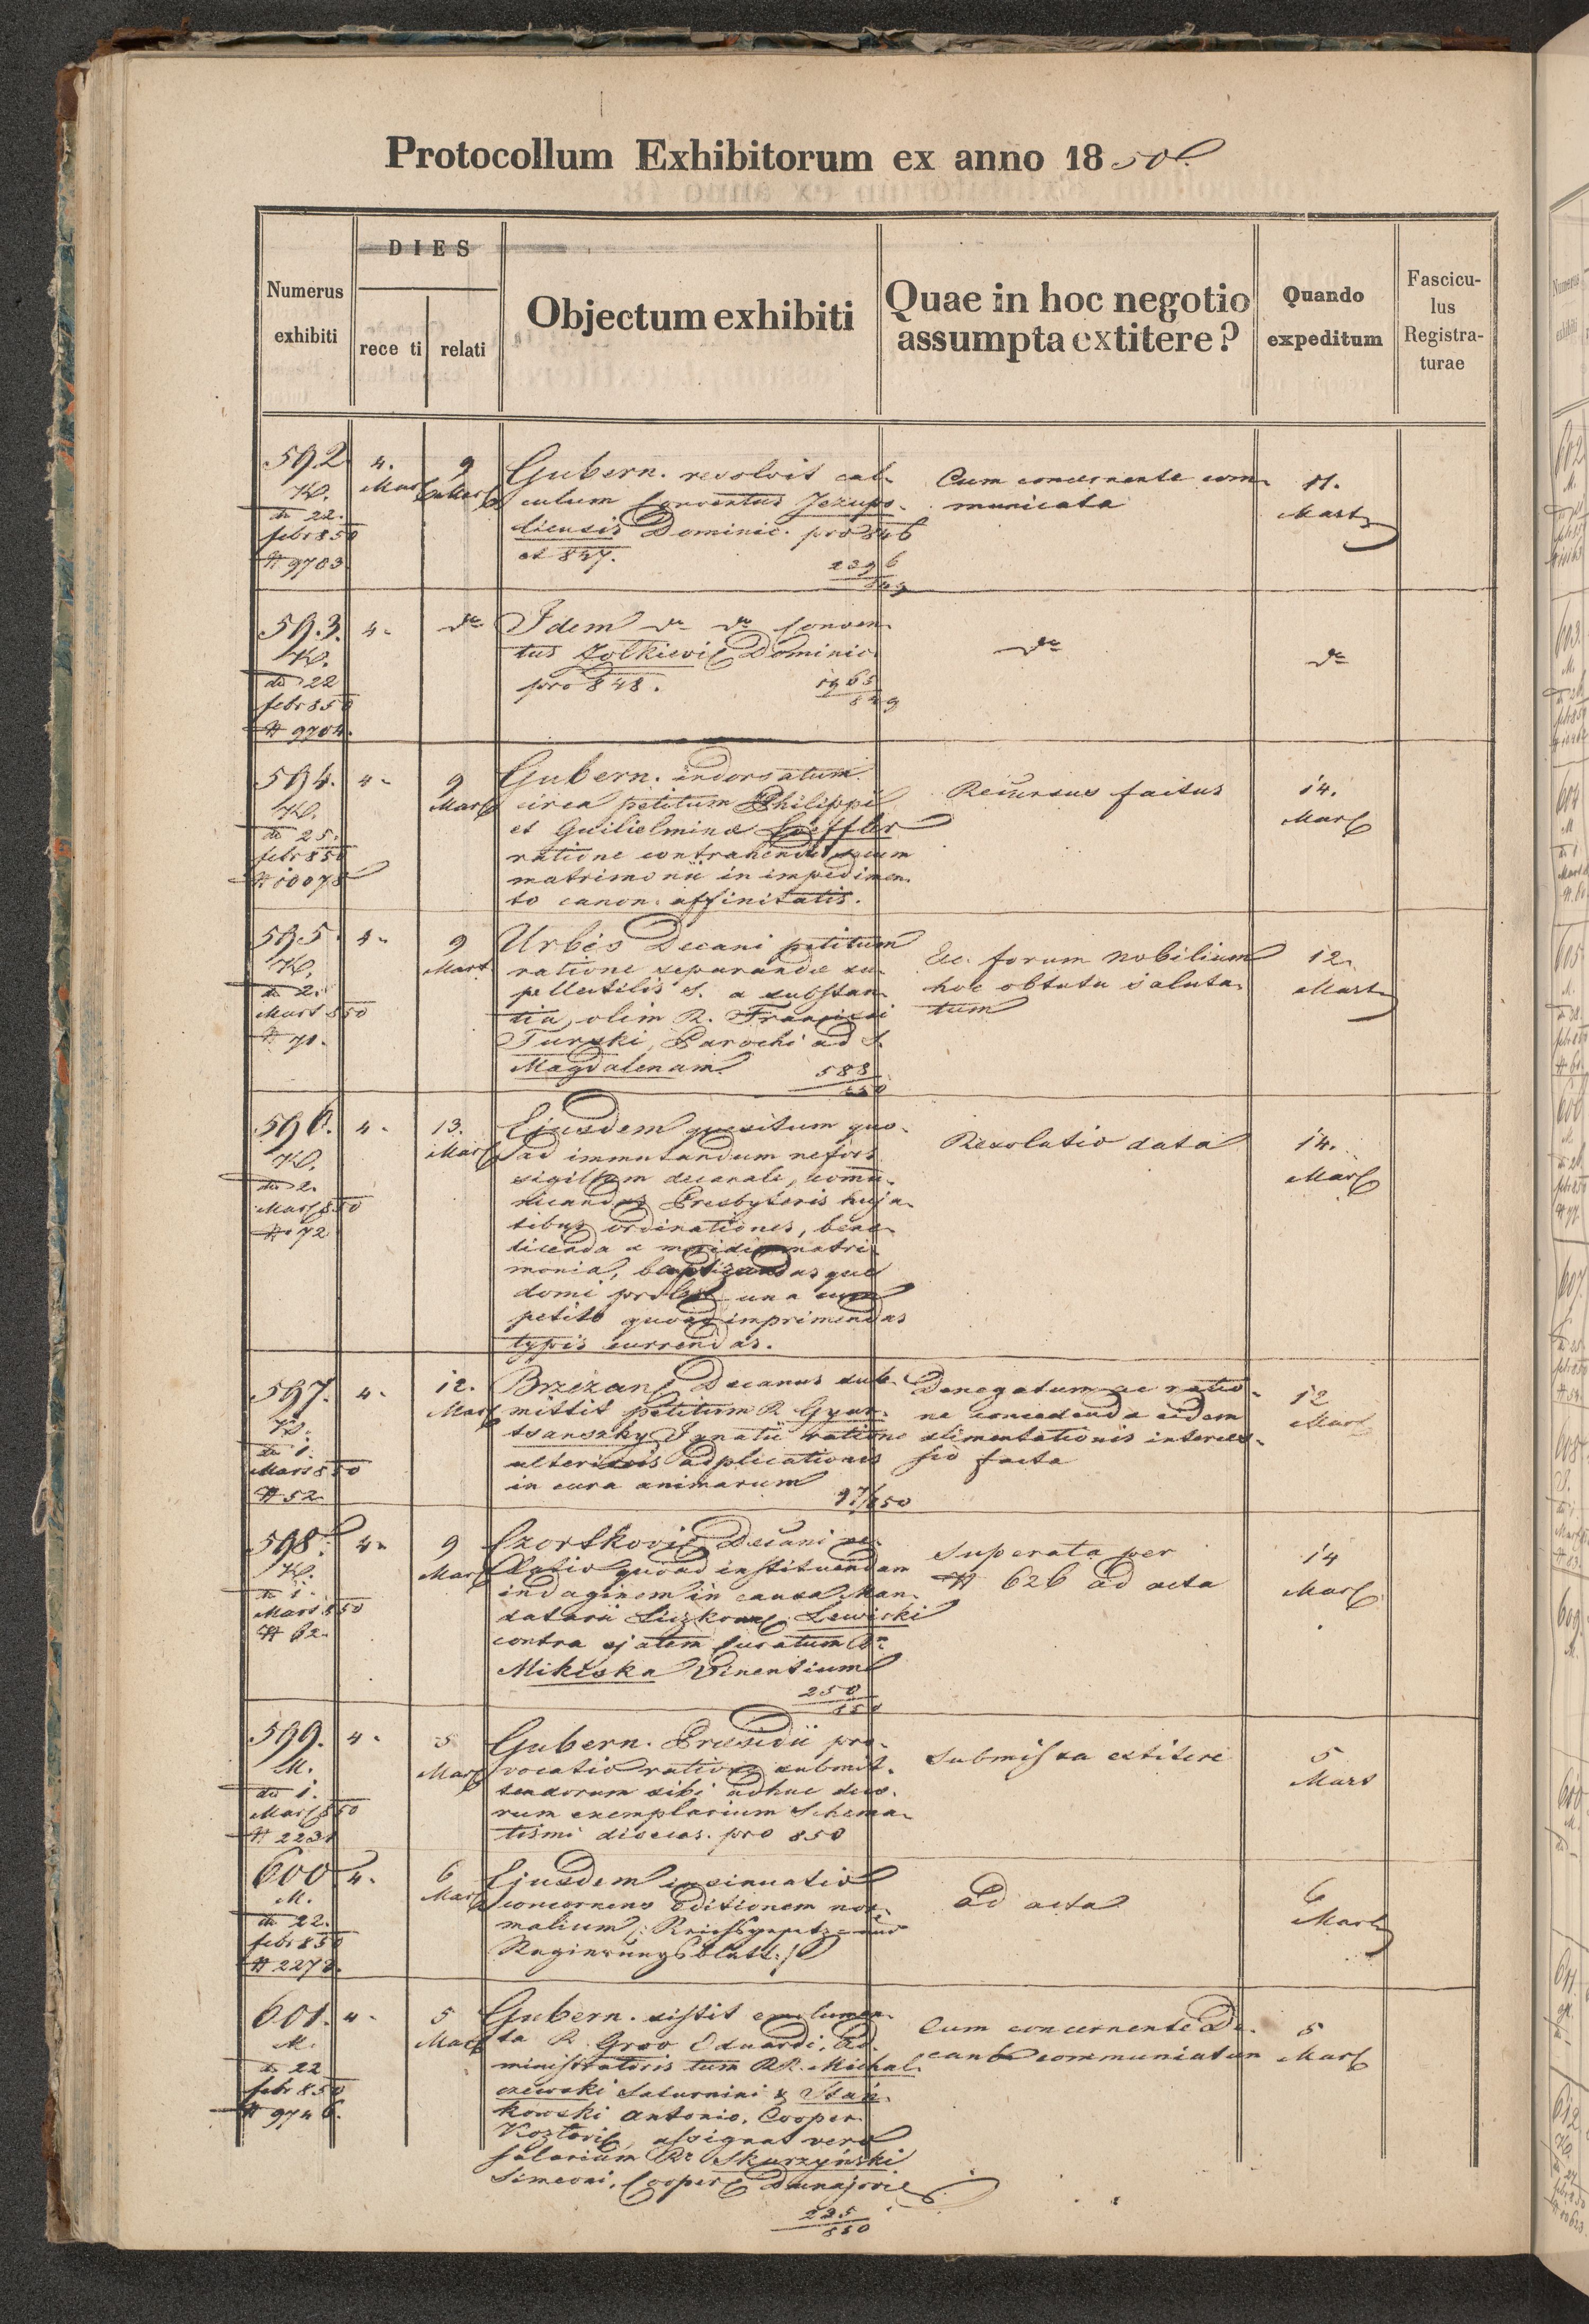 Protocollum Exhibitorum ex anno 1850.
DIES
Numerus exhibiti
rece ti
relati
Objectum exhibiti
Quae in hoc negotio assumpta extitere?
Quando expeditum
Fascicu-
lus
Registra-
turae
592
4.
Mart
9
Mart
de 22.
febr 850
# 9703
Gubern. resolvit cal-
culum Conventus Jezupo-
liensis Dominic. pro 846
et 847.
2296
849
Cum concernente com-
municata
11.
Mart
593.
4.
do
de 22
febr 850
# 9704.
Idem do do Conven-
tus Zolkievi Dominic.
pro 848.
1965
849
do
do
594.
4.
9
Mart
de 25.
febr 850
# 10078
Gubern. indorsatum
circa petitum Philippi
et Guilielminae Loeffler
ratione contrahendi secum
matrimonii in impedimen-
to canon. affinitatis.
Recursus factus
14.
Mart
595.
4.
9
Mart
de 2.
Mart 850
# 71.
Urbis Decani petitum
ratione separandae su-
pellectilis S. a substan-
tia olim R. Francisci
Turski, Parochi ad S.
Magdalenam
588
850
Exc. forum Nobilium
hoc obtutu saluta-
tum
12.
Mart
596.
4.
13.
Mart
de 2.
Mart 850
# 72
Ejusdem quaesitum quo-
ad immutandum nefors
sigillum decanale, commu-
nicandas Presbyteris huja-
tibus ordinationes, bene-
dicenda a meridie matri-
monia, baptizandasque
domi proles una cum
petito quoad imprimendas
typis currendas.
Resolutio data
14.
Mart
597.
4.
12.
Mart
de 1.
Mart 850
# 52
Brzezan Decanus sub-
mittit petitum R. Gyur-
tsanszky Ignatii ratione
ulterioris adplicationis
in cura animarum
97/850
Denegatum ac ratio-
ne concedenda eidem
alimentationis interces-
sio facta
12
Mart
598.
4.
9
Mart
de 1.
Mart 850
# 62.
Czortkovi Decani re-
latio quoad instituendam
indaginem in causa Man-
datarii Lewicki
contra ejatem Curatum Rr
Mikiska Vincentium
250
850
Superata per
# 626 ad acta
14
Mart
599.
4.
5
Mart
M.
de 1.
Mart 850
# 2231
Gubern. Praesidii pro-
vocatio ratione submit-
tendorum sibi adhuc duo-
rum exemplarium Schema-
tismi dioeces. pro 850
Submissa extitere
5
Mart
600
4.
6
Mart
M.
de 22.
febr 850
# 2272.
Ejusdem insinuatio
concernens editionem nor-
malium /: Reichsgesetz- und
Regierungsblatt :/
ad acta
6
Mart
601.
4.
5
Mart
M.
de 22
febr 850
# 9746.
Gubern. sistit emolumen-
ta R. Groo Eduardi, Ad-
ministratoris tum RR. Michal-
czewski Saturnini & Stań-
kowski Antonio, Cooper.
Kozlovi, assignat vero
salarium Rr Skurzyński
Simeoni, Cooper Dunajovi
225
850
Cum concernente De-
canto communicatum
5
Mart